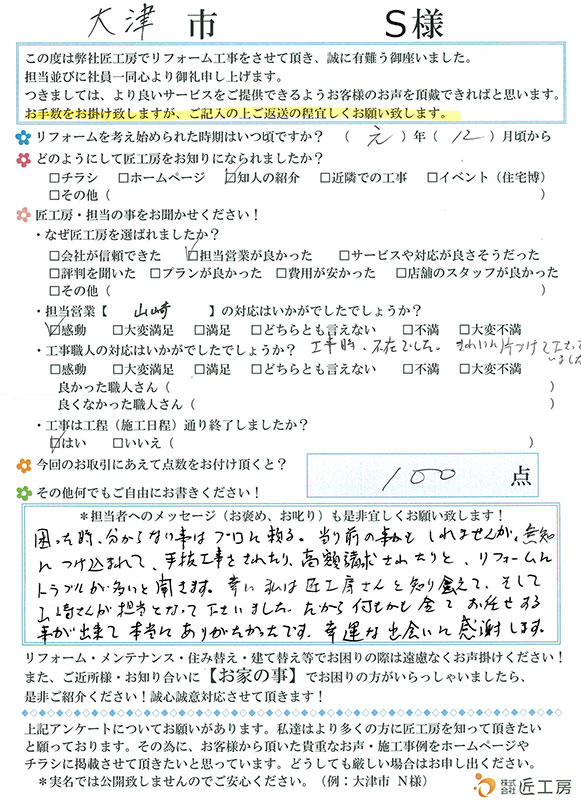 大津 市 S様
この度は弊社匠工房でリフォーム工事をさせて頂き、誠に有難う御座いました。
担当並びに社員一同心より御礼申し上げます。
つきましては、より良いサービスをご提供できるようお客様のお声を頂戴できればと思います。
お手数をお掛け致しますが、ご記入の上ご返送の程宜しくお願い致します。
リフォームを考え始められた時期はいつ頃ですか？（ 元 ）年（ 12 ）月頃から
どのようにして匠工房をお知りになられましたか？
□チラシ □ホームページ ☑知人の紹介 □近隣での工事 □イベント（住宅博）
□その他（ ）
匠工房・担当の事をお聞かせください！
・なぜ匠工房を選ばれましたか？
□会社が信頼できた ☑担当営業が良かった □サービスや対応が良さそうだった
□評判を聞いた □プランが良かった □費用が安かった □店舗のスタッフが良かった
□その他（ ）
・担当営業【 山崎 】の対応はいかがでしたでしょうか？
☑感動 □大変満足 □満足 □どちらとも言えない □不満 □大変不満
・工事職人の対応はいかがでしたでしょうか？ 工事時、不在でした。きれいに片づけて下さって
いました
□感動 □大変満足 □満足 □どちらとも言えない □不満 □大変不満
良かった職人さん（ ）
良くなかった職人さん（ ）
・工事は工程（施工日程）通り終了しましたか？
☑はい □いいえ（ ）
今回のお取引にあえて点数をお付け頂くと？ 100 点
その他何でもご自由にお書きください！
＊担当者へのメッセージ（お褒め、お叱り）も是非宜しくお願い致します！
困った時、分からない事はプロに頼る。当り前の事かもしれませんが、無知
につけ込まれて、手抜工事をされたり、高額請求されたりと、リフォームに
トラブルが多いと聞きます。幸い私は匠工房さんと知り会えて、そして
山崎さんが担当となって下さいました。だから何もかも全てお任せする
事が出来て本当にありがたかったです。幸運な出会いに感謝します。
リフォーム・メンテナンス・住み替え・建て替え等でお困りの際は遠慮なくお声掛けください！
また、ご近所様・お知り合いに【お家の事】でお困りの方がいらっしゃいましたら、
是非ご紹介ください！誠心誠意対応させて頂きます！
上記アンケートについてお願いがあります。私達はより多くの方に匠工房を知って頂きたい
と願っております。その為に、お客様から頂いた貴重なお声・施工事例をホームページや
チラシに掲載させて頂きたいと思っています。どうしても厳しい場合はお申し出ください。
＊実名では公開致しませんのでご安心ください。（例：大津市 N様）
株式会社 匠工房